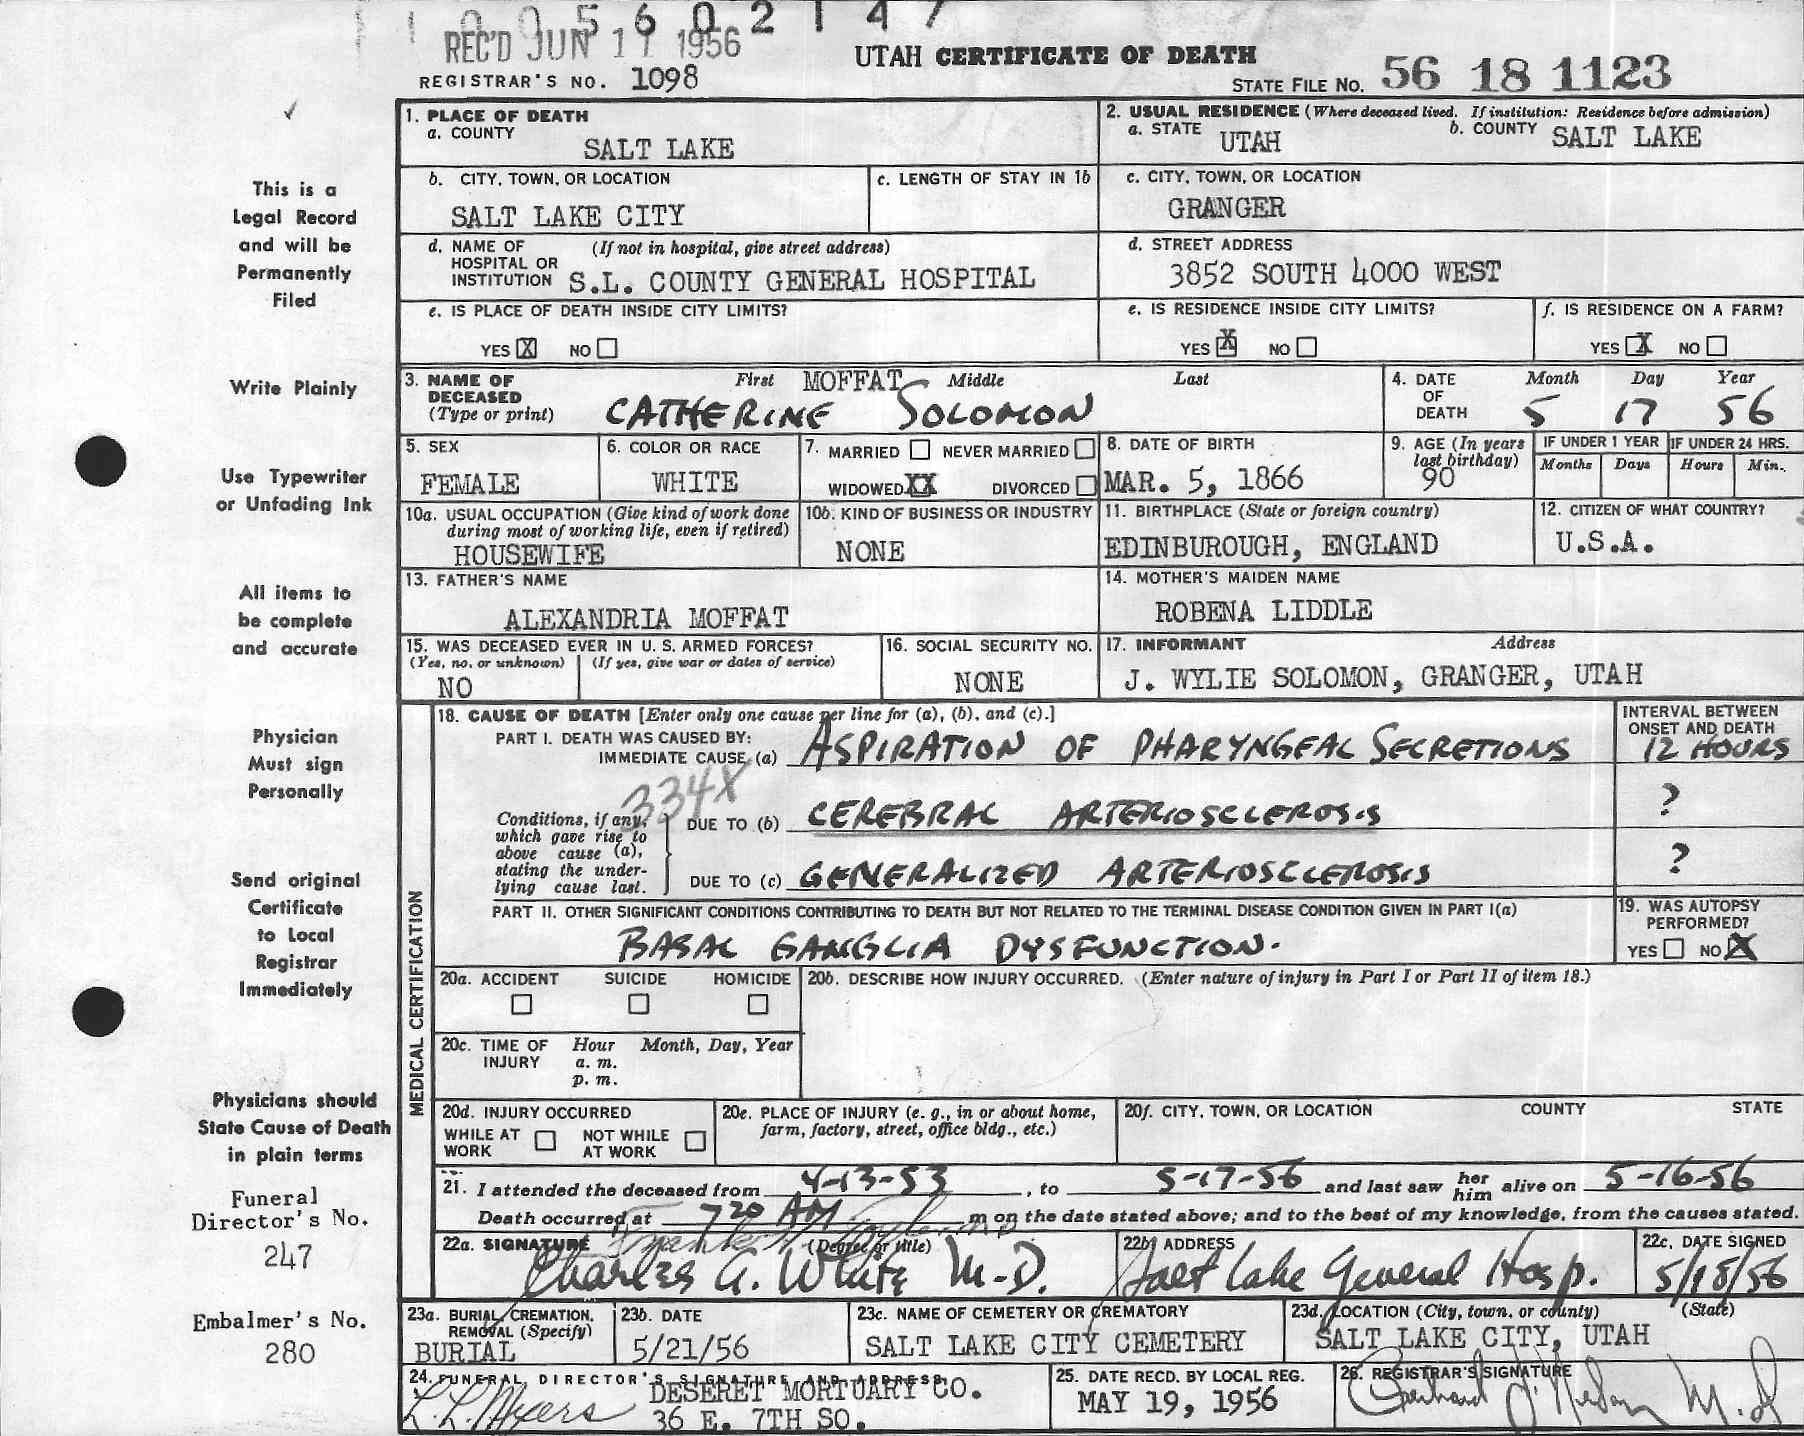 1005602147
REC'D JUN 11 1956
UTAH CERTIFICATE OF DEATH
REGISTRAR'S NO. 1098
STATE FILE NO. 56 18 1123
This is a
Legal Record
and will be
Permanently
Filed
Write Plainly
Use Typewriter
or Unfading Ink
All items to
be complete
and accurate
Physician
Must sign
Personally
Send original
Certificate
to Local
Registrar
Immediately
Physicians should
State Cause of Death
in plain terms
Funeral
Director's No.
247
Embalmer's No.
280
1. PLACE OF DEATH
a. COUNTY
SALT LAKE
2. USUAL RESIDENCE (Where deceased lived. If institution: Residence before admission)
a. STATE UTAH b. COUNTY SALT LAKE
b. CITY, TOWN, OR LOCATION
SALT LAKE CITY
c. LENGTH OF STAY IN 1b
c. CITY, TOWN, OR LOCATION
GRANGER
d. NAME OF (If not in hospital, give street address)
HOSPITAL OR
INSTITUTION S.L. COUNTY GENERAL HOSPITAL
d. STREET ADDRESS
3852 SOUTH 4000 WEST
e. IS PLACE OF DEATH INSIDE CITY LIMITS?
YES X NO
e. IS RESIDENCE INSIDE CITY LIMITS?
YES X NO
f. IS RESIDENCE ON A FARM?
YES X NO
3. NAME OF DECEASED (Type or print)
First MOFFAT Middle Last
CATHERINE SOLOMON
4. DATE OF DEATH
Month Day Year
5 17 56
5. SEX
FEMALE
6. COLOR OR RACE
WHITE
7. MARRIED NEVER MARRIED
WIDOWED XX DIVORCED
8. DATE OF BIRTH
MAR. 5, 1866
9. AGE (In years last birthday)
90
IF UNDER 1 YEAR
Months Days
IF UNDER 24 HRS.
Hours Min.
10a. USUAL OCCUPATION (Give kind of work done
during most of working life, even if retired)
HOUSEWIFE
10b. KIND OF BUSINESS OR INDUSTRY
NONE
11. BIRTHPLACE (State or foreign country)
EDINBUROUGH, ENGLAND
12. CITIZEN OF WHAT COUNTRY?
U.S.A.
13. FATHER'S NAME
ALEXANDRIA MOFFAT
14. MOTHER'S MAIDEN NAME
ROBENA LIDDLE
15. WAS DECEASED EVER IN U. S. ARMED FORCES?
(Yes, no, or unknown) (If yes, give war or dates of service)
NO
16. SOCIAL SECURITY NO.
NONE
17. INFORMANT Address
J. WYLIE SOLOMON, GRANGER, UTAH
MEDICAL CERTIFICATION
18. CAUSE OF DEATH [Enter only one cause per line for (a), (b), and (c).]
PART I. DEATH WAS CAUSED BY:
IMMEDIATE CAUSE (a) ASPIRATION OF PHARYNGEAL SECRETIONS
INTERVAL BETWEEN
ONSET AND DEATH
12 HOURS
334X
Conditions, if any,
which gave rise to
above cause (a),
stating the under-
lying cause last.
DUE TO (b) CEREBRAL ARTERIOSCLEROSIS
?
DUE TO (c) GENERALIZED ARTERIOSCLEROSIS
?
PART II. OTHER SIGNIFICANT CONDITIONS CONTRIBUTING TO DEATH BUT NOT RELATED TO THE TERMINAL DISEASE CONDITION GIVEN IN PART I(a)
BASAL GANGLIA DYSFUNCTION.
19. WAS AUTOPSY
PERFORMED?
YES NO X
20a. ACCIDENT SUICIDE HOMICIDE
20b. DESCRIBE HOW INJURY OCCURRED. (Enter nature of injury in Part I or Part II of item 18.)
20c. TIME OF INJURY
Hour Month, Day, Year
a. m.
p. m.
20d. INJURY OCCURRED
WHILE AT WORK NOT WHILE AT WORK
20e. PLACE OF INJURY (e. g., in or about home,
farm, factory, street, office bldg., etc.)
20f. CITY, TOWN, OR LOCATION COUNTY STATE
21. I attended the deceased from 4-13-53, to 5-17-56 and last saw her him alive on 5-16-56
Death occurred at 7 20 AM m on the date stated above; and to the best of my knowledge, from the causes stated.
22a. SIGNATURE (Degree or title)
Charles G. White M.D.
22b. ADDRESS
Salt Lake General Hosp.
22c. DATE SIGNED
5/18/56
23a. BURIAL, CREMATION,
REMOVAL (Specify)
BURIAL
23b. DATE
5/21/56
23c. NAME OF CEMETERY OR CREMATORY
SALT LAKE CITY CEMETERY
23d. LOCATION (City, town, or county) (State)
SALT LAKE CITY, UTAH
24. FUNERAL DIRECTOR'S SIGNATURE AND ADDRESS
DESERET MORTUARY CO.
L. L. Myers 36 E. 7TH SO.
25. DATE RECD. BY LOCAL REG.
MAY 19, 1956
26. REGISTRAR'S SIGNATURE
M.D